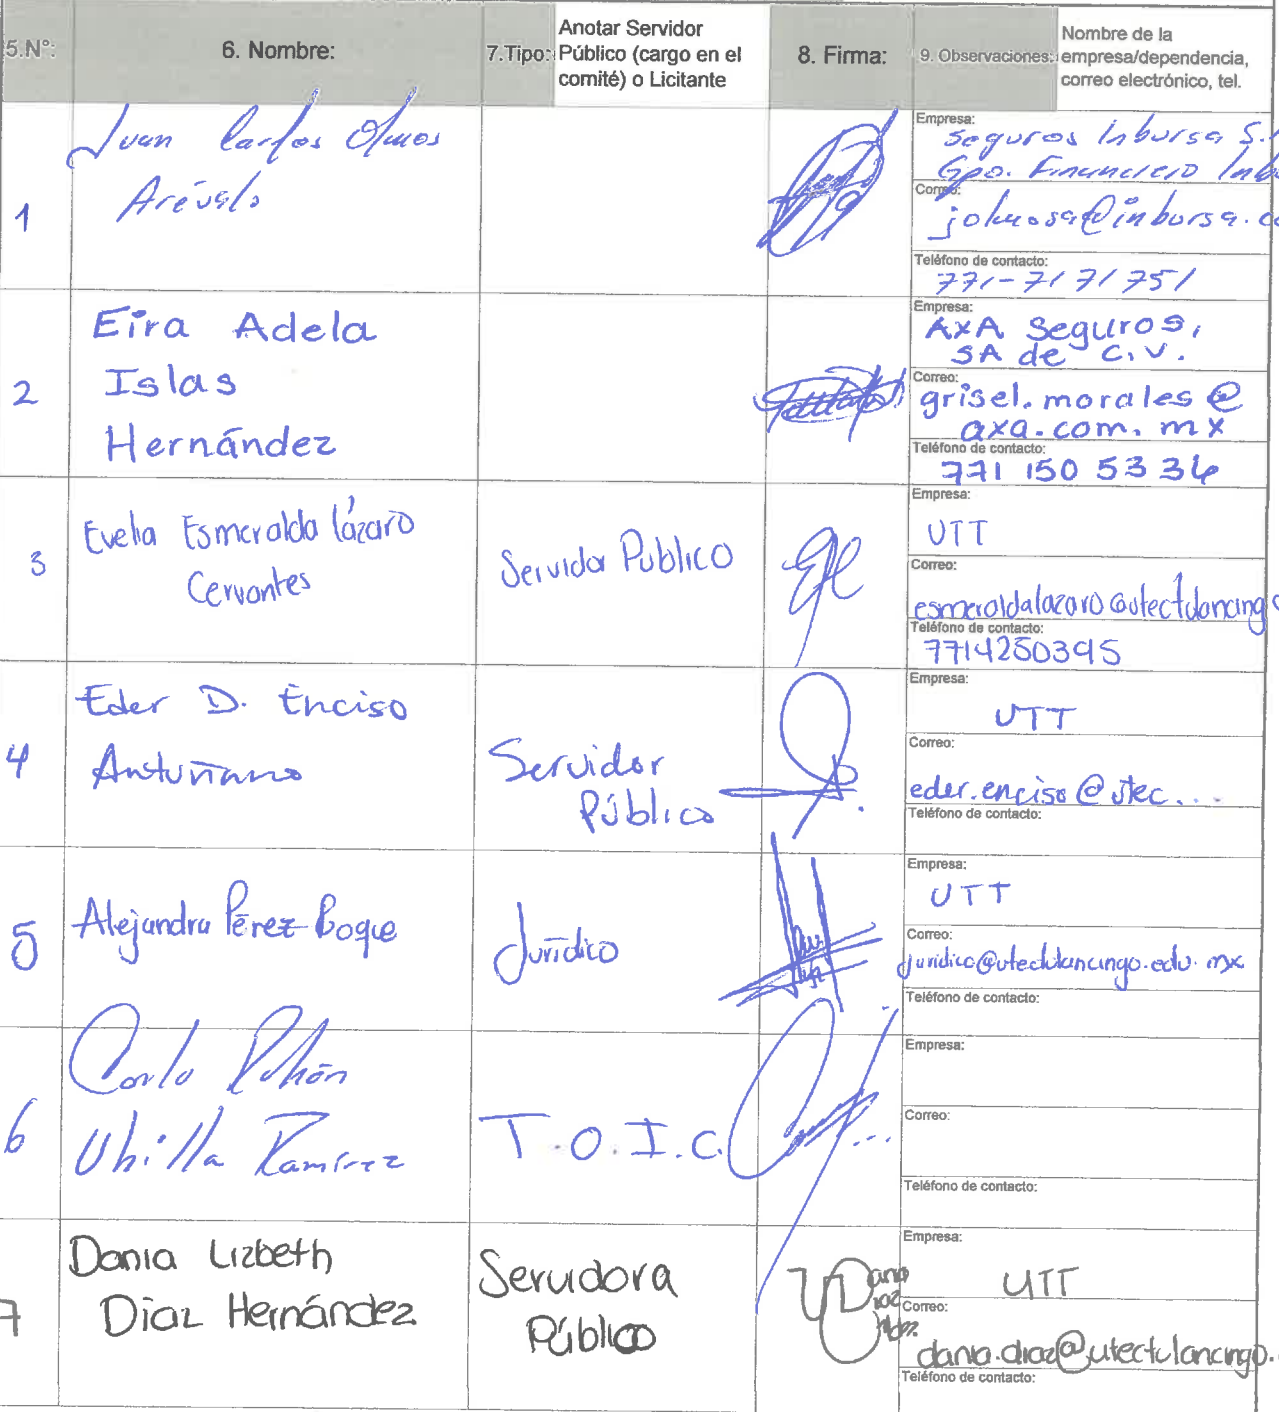 5.N°:
6. Nombre:
7.Tipo:
Anotar Servidor
Público (cargo en el
comité) o Licitante
8. Firma:
9. Observaciones:
Nombre de la
empresa/dependencia,
correo electrónico, tel.
1
Juan Carlos Olmos
Arévalo
Empresa:
Seguros Inbursa S.
Gpo. Financiero Inb
Correo:
jolmosa@inbursa.co
Teléfono de contacto:
771-7171751
2
Eira Adela
Islas
Hernández
Empresa:
AXA Seguros,
SA de C.V.
Correo:
grisel.morales@
axa.com.mx
Teléfono de contacto:
771 150 53 36
3
Evelia Esmeralda Lázaro
Cervantes
Servidor Publico
Empresa:
UTT
Correo:
esmeraldalazaro@utectulancingo
Teléfono de contacto:
7714250395
4
Eder D. Enciso
Antuñano
Servidor
Público
Empresa:
UTT
Correo:
eder.enciso@utec...
Teléfono de contacto:
5
Alejandra Pérez Roque
Jurídico
Empresa:
UTT
Correo:
juridico@utectulancingo.edu.mx
Teléfono de contacto:
6
Carlo
Ubilla Ramírez
T.O.I.C.
Empresa:
Correo:
Teléfono de contacto:
7
Dania Lizbeth
Díaz Hernández
Servidora
Público
Dania
Díaz
Hdez.
Empresa:
UTT
Correo:
dania.diaz@utectulancingo.
Teléfono de contacto: